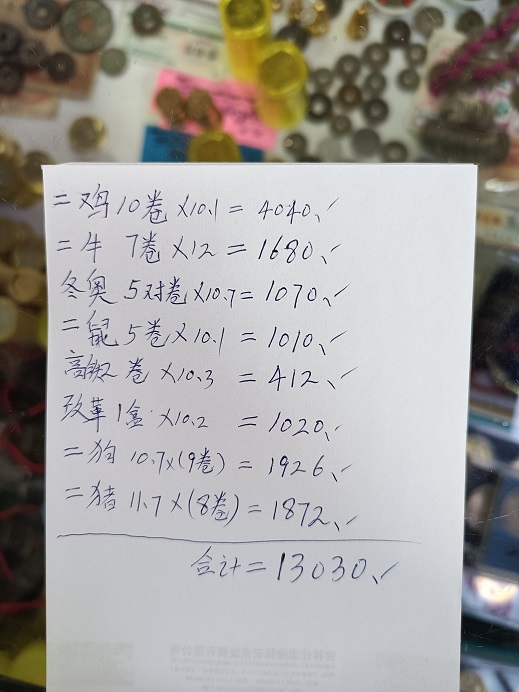 二鸡10卷×10.1=4040、✓
二牛 7卷×12=1680、✓
冬奥 5对卷×10.7=1070、✓
二鼠5卷×10.1=1010、✓
高铁2卷×10.3=412、✓
改革1盒×10.2=1020、✓
二狗 10.7×(9卷)=1926、✓
二猪 11.7×(8卷)=1872、✓
合计=13030、✓